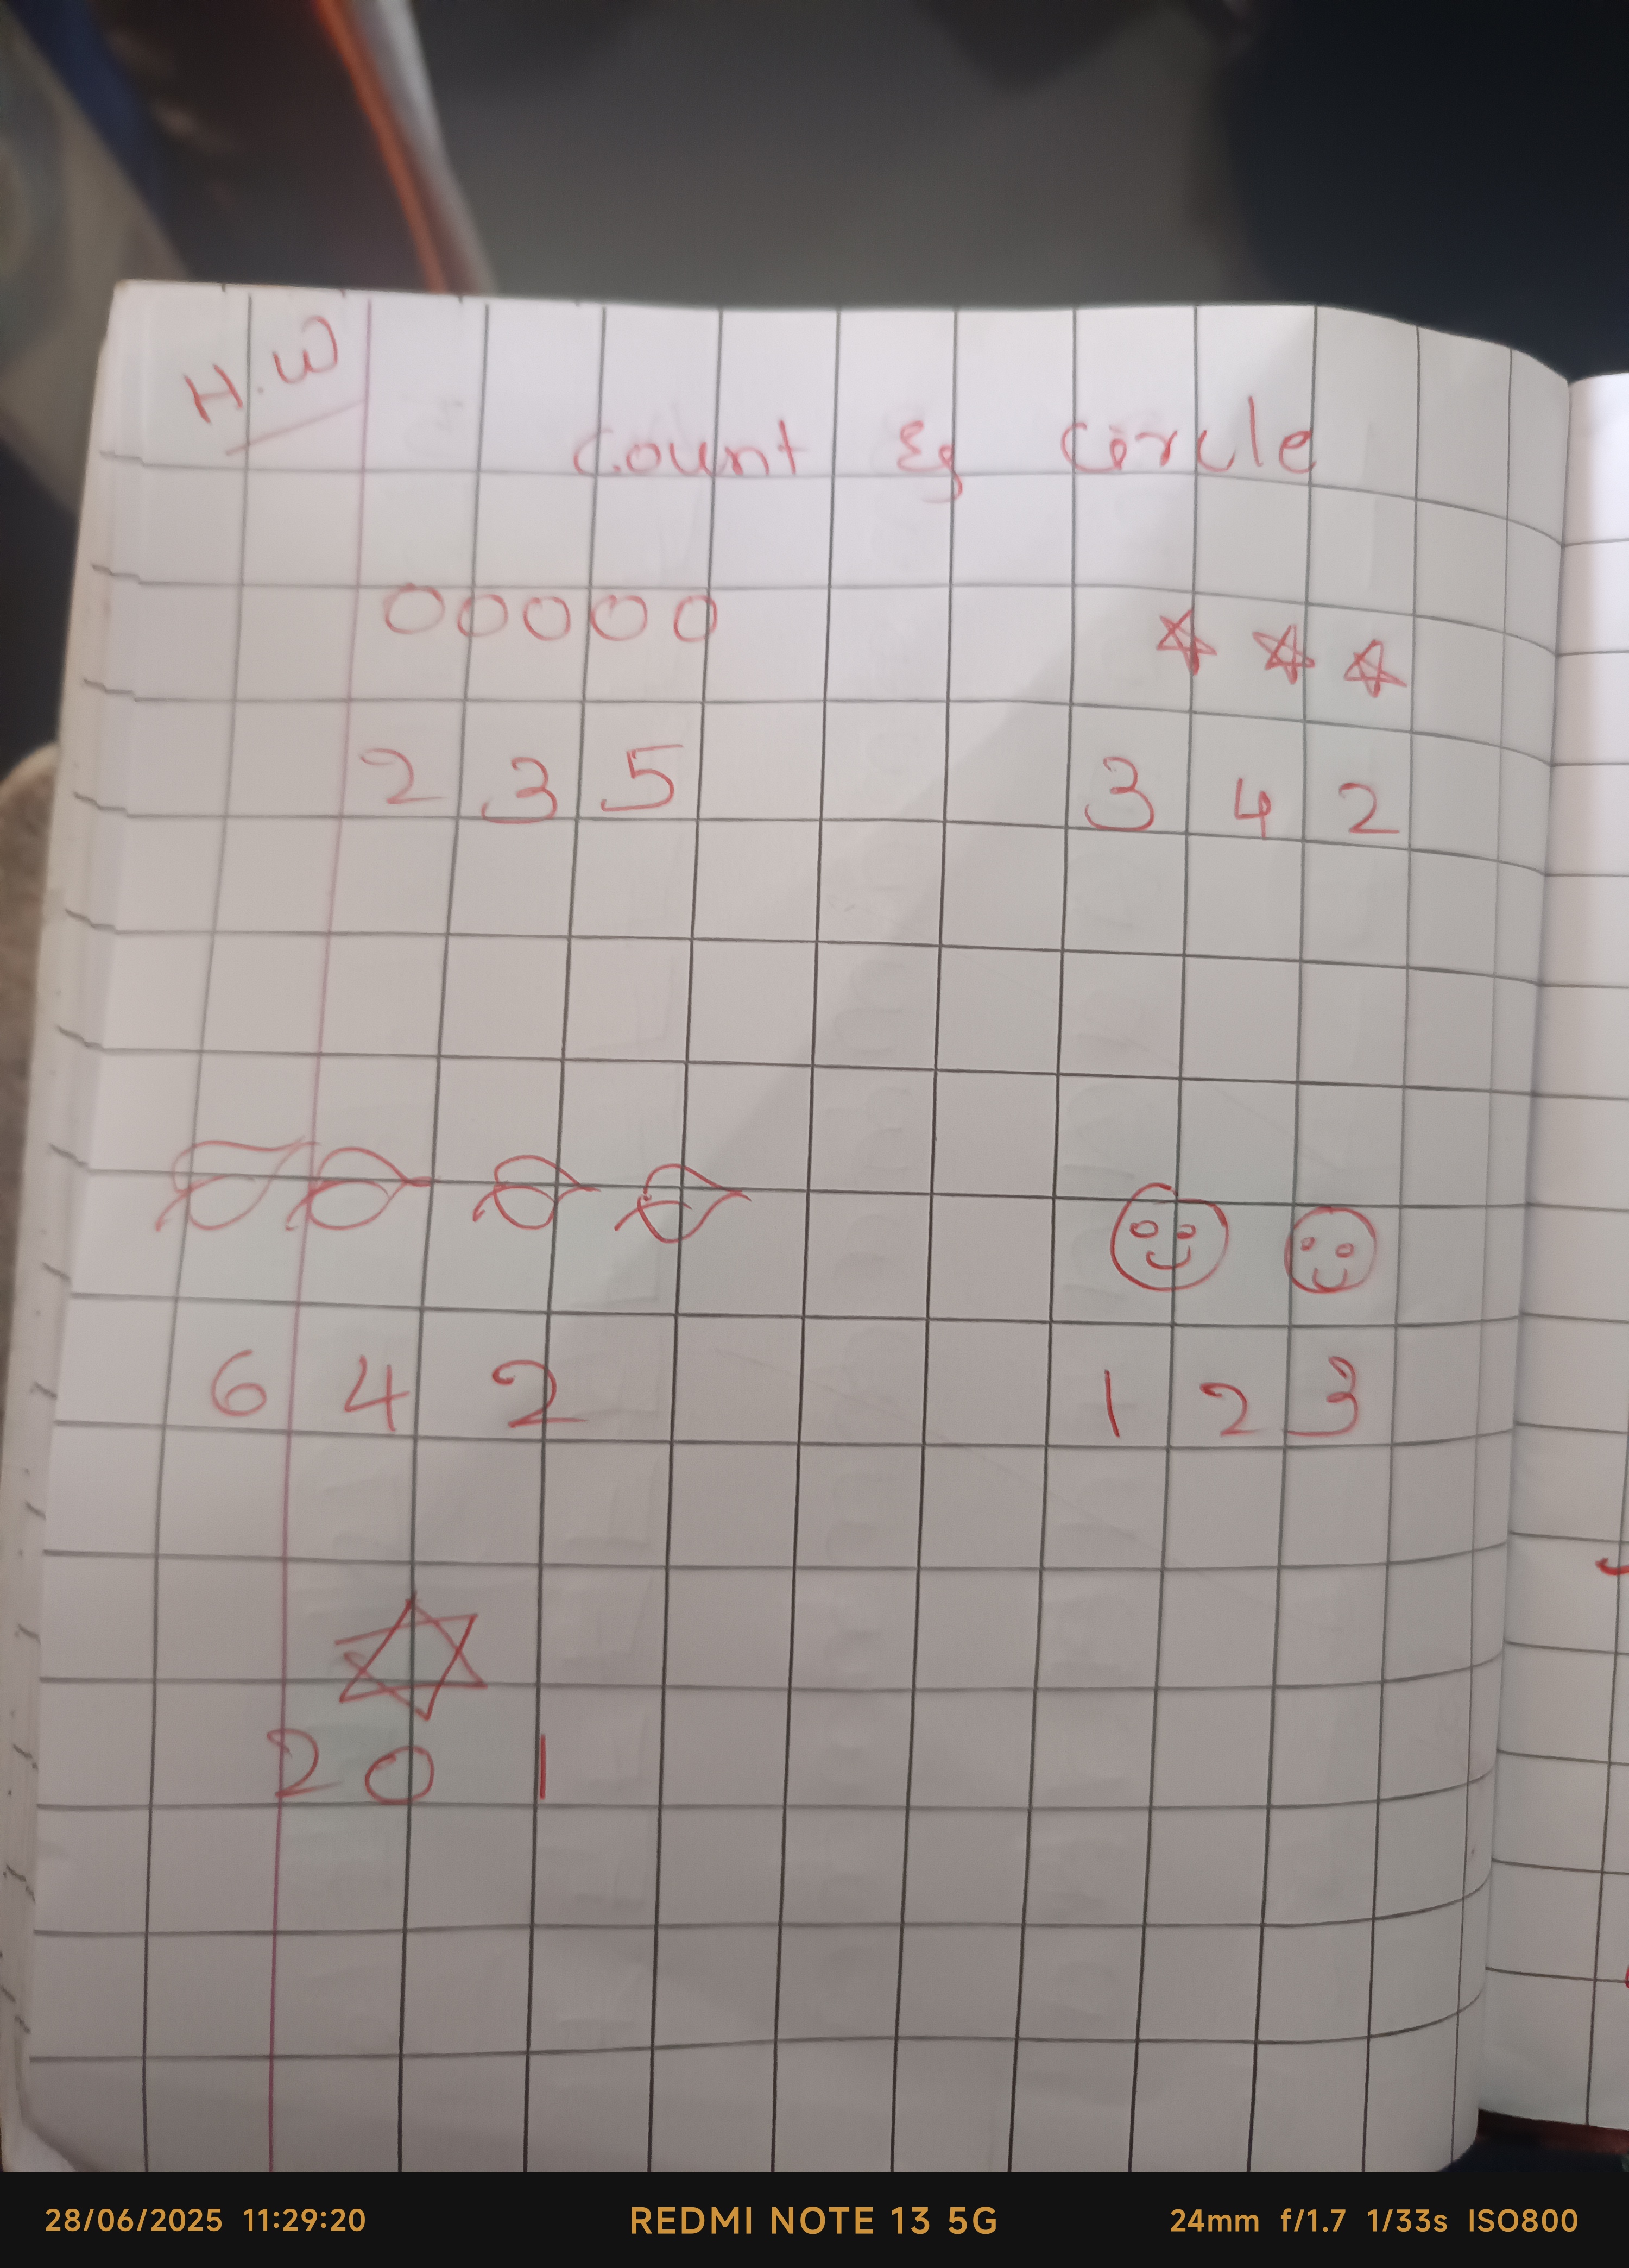 H.W
Count & Circle
2 3 5
3 4 2
6 4 2
1 2 3
2 0 1
28/06/2025 11:29:20 REDMI NOTE 13 5G 24mm f/1.7 1/33s ISO800